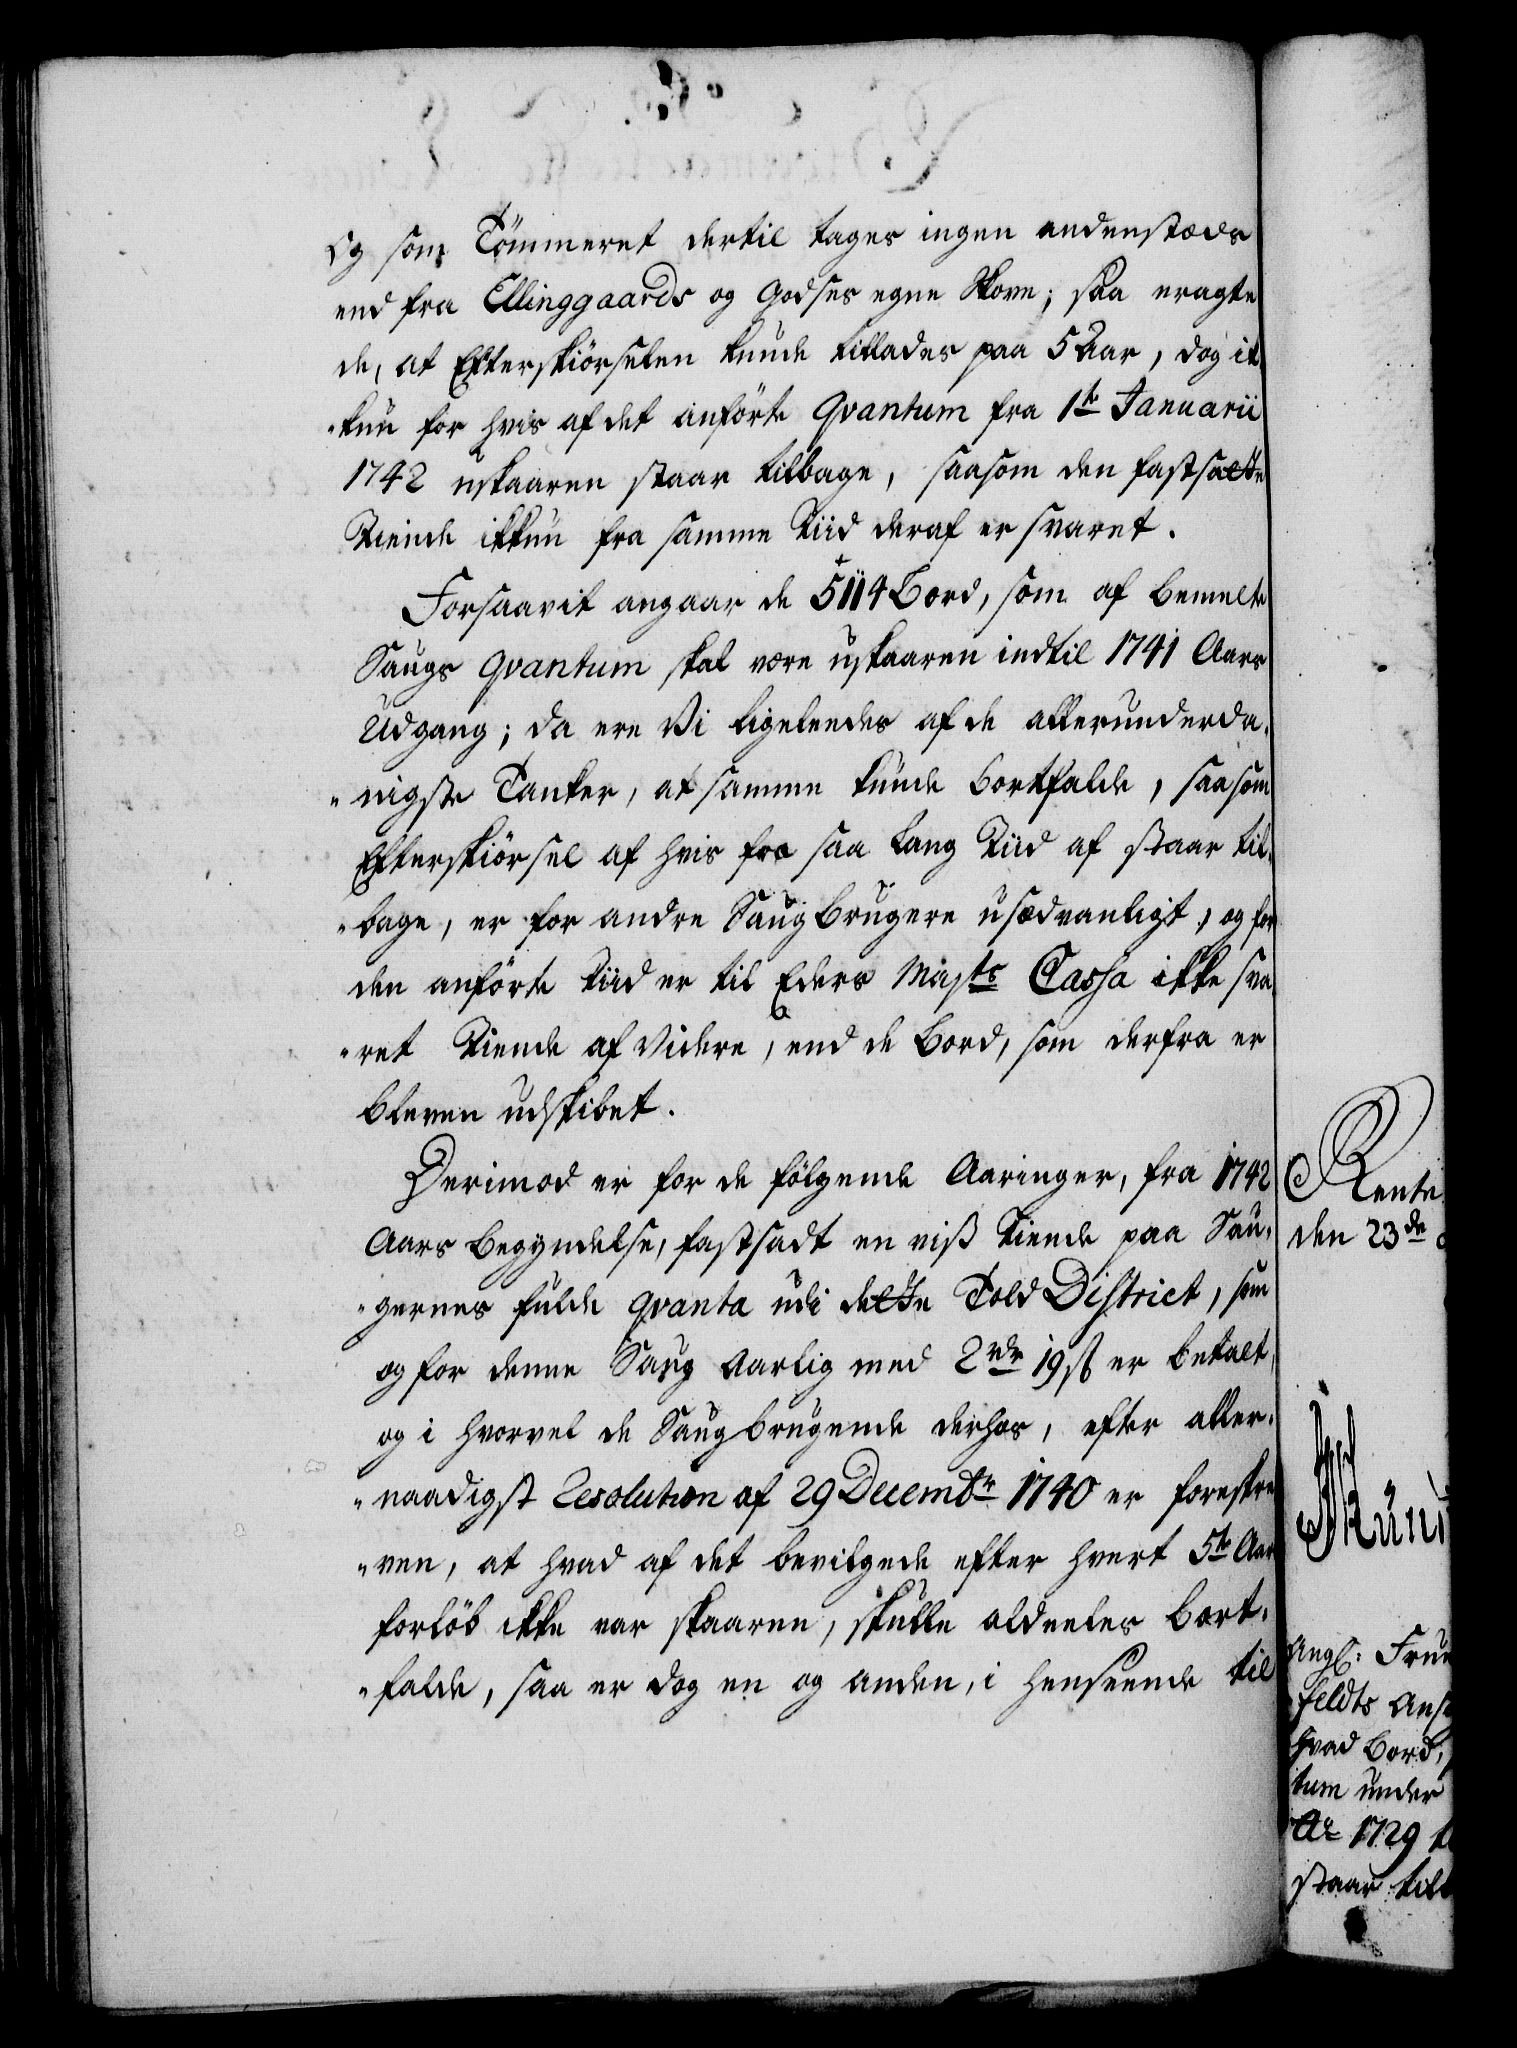 Og som Tömmeret dertil tages ingen andenstæds
end fra Ellinggaards og Godses egne Skove; saa eragte
de, at Efterskiörselen kunde tillades paa 5 Aar, dog ik
"kun for hvis af det anförte Qvantum fra 1te Januarii
1742 uskaaren staar tilbage, saasom den fastsatte
Tiende ikkun fra samme Tiid deraf er svaret.
Forsaavit angaar de 5114 Bord, som af bemelte
Saugs qvantum skal være uskaaren indtil 1741 Aars
Udgang; da ere Vi ligeledes af de allerunderda-
"nigste Tanker, at samme kunde bortfalde, saasom
Efterskiörsel af hvis fra saa lang Tiid af staar til-
"bage, er for andre Saugbrugere usædvanligt, og for
den anförte Tiid er til Eders Majts Cassa ikke sva
"ret Tiende af videre, end de Bord, som derfra er
bleven udskibet.
Derimod er for de fölgende Aaringer, fra 1742
Aars Begyndelse, fastsadt en viss Tiende paa Sau-
"gernes fulde qvanta udi dette Told District, som
og for denne Saug Aarlig med 2 rdr 19 ß er betalt,
og i hvorvel de Saugbrugende derhos, efter aller-
"naadigst Resolution af 29 Decembr 1740 er foreskre
"ven, at hvad af det bevilgede efter hvert 5te Aar
forlöb ikke var skaaren, skulle aldeeles bort-
"falde, saa er dog en og anden, i henseende til
Rente
den 23de
Angl: Frue
feldts Ans
hvad Bord,
tum under
Ao 1729
staar tilb